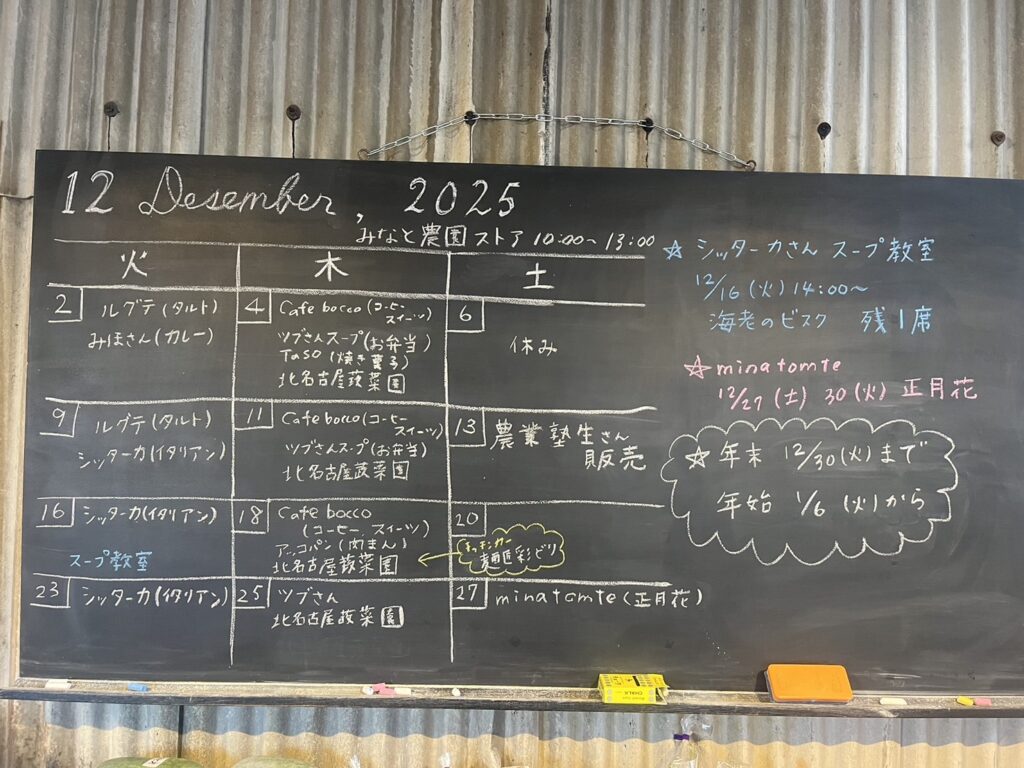 12 Desember, 2025
みなと農園ストア 10:00~13:00
火 木 土
2 ルグテ(タルト)
みほさん(カレー)
4 Cafe bocco(コーヒー
スイーツ)
ツブさんスープ(お弁当)
TaSo(焼き菓子)
北名古屋蔬菜園
6
休み
9 ルグテ(タルト)
シッターカ(イタリアン)
11 Cafe bocco(コーヒー
スイーツ)
ツブさんスープ(お弁当)
北名古屋蔬菜園
13 農業塾生さん
販売
16 シッターカ(イタリアン)
スープ教室
18 Cafe bocco
(コーヒー スイーツ)
アッコパン(肉まん)
北名古屋蔬菜園
20
キッチンカー
麺匠彩どり
23 シッターカ(イタリアン)
25 ツブさん
北名古屋蔬菜園
27 minatomte(正月花)
☆ シッターカさん スープ教室
12/16(火)14:00~
海老のビスク 残1席
☆ minatomte
12/27(土) 30(火) 正月花
☆ 年末 12/30(火)まで
年始 1/6(火)から
CHALK